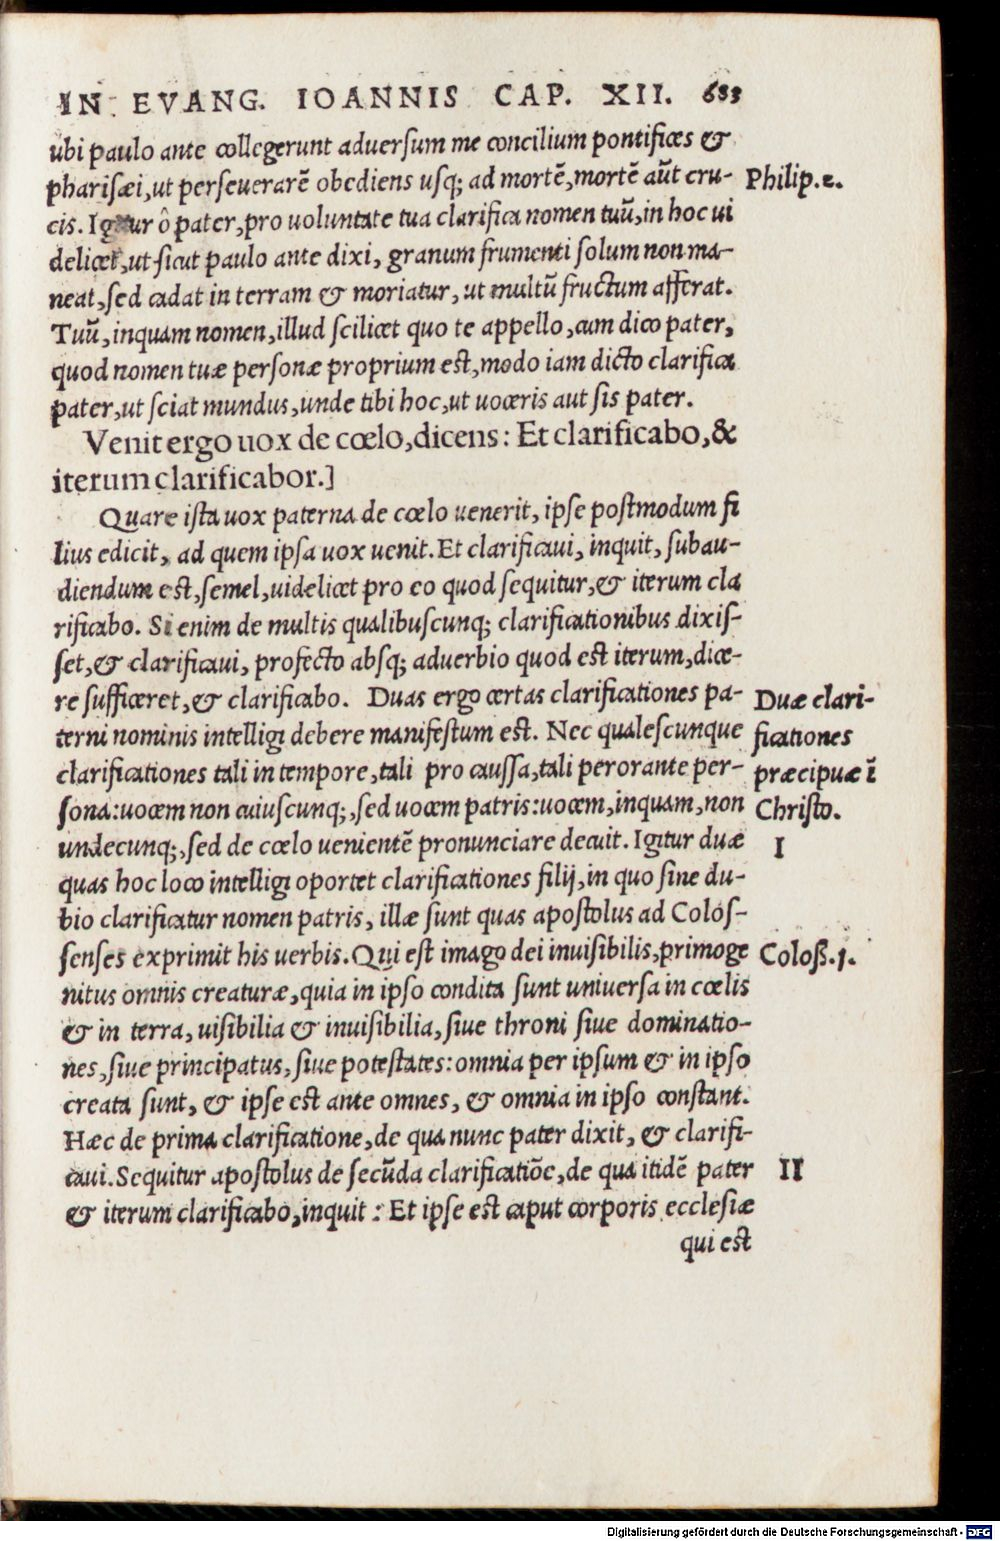 IN EVANG. IOANNIS CAP. XII. 633
ubi paulo ante collegerunt aduersum me concilium pontifices &
pharisæi, ut perseuerarē obediens usq; ad mortē, mortē aūt cru-
Philip.2.
cis. Igitur ô pater, pro uoluntate tua clarifica nomen tuū, in hoc ui
delicet, ut sicut paulo ante dixi, granum frumenti solum non ma-
neat, sed cadat in terram & moriatur, ut multū fructum afferat.
Tuū, inquam nomen, illud scilicet quo te appello, cum dico pater,
quod nomen tuæ personæ proprium est, modo iam dicto clarifica
pater, ut sciat mundus, unde tibi hoc, ut uoceris aut sis pater.
Venit ergo uox de cœlo, dicens: Et clarificabo, &
iterum clarificabor.]
Quare ista uox paterna de cœlo uenerit, ipse postmodum fi
lius edicit, ad quem ipsa uox uenit. Et clarificaui, inquit, subau-
diendum est, semel, uidelicet pro eo quod sequitur, & iterum cla
rificabo. Si enim de multis qualibuscunq; clarificationibus dixis-
set, & clarificaui, profecto absq; aduerbio quod est iterum, dice-
re sufficeret, & clarificabo. Duas ergo certas clarificationes pa-
Duæ clari-
terni nominis intelligi debere manifestum est. Nec qualescunque
ficationes
clarificationes tali in tempore, tali pro caussa, tali perorante per-
præcipuæ ī
sona: uocem non cuiuscunq;, sed uocem patris: uocem, inquam, non
Christo.
undecunq;, sed de cœlo uenientē pronunciare decuit. Igitur duæ
I
quas hoc loco intelligi oportet clarificationes filij, in quo sine du-
bio clarificatur nomen patris, illæ sunt quas apostolus ad Colos-
senses exprimit his uerbis. Qui est imago dei inuisibilis, primoge
Coloß.1.
nitus omnis creaturæ, quia in ipso condita sunt uniuersa in cœlis
& in terra, uisibilia & inuisibilia, siue throni siue dominatio-
nes, siue principatus, siue potestates: omnia per ipsum & in ipso
creata sunt, & ipse est ante omnes, & omnia in ipso constant.
Hæc de prima clarificatione, de qua nunc pater dixit, & clarifi-
caui. Sequitur apostolus de secūda clarificatiōe, de qua itidē pater
II
& iterum clarificabo, inquit: Et ipse est caput corporis ecclesiæ
qui est
Digitalisierung gefördert durch die Deutsche Forschungsgemeinschaft - DFG